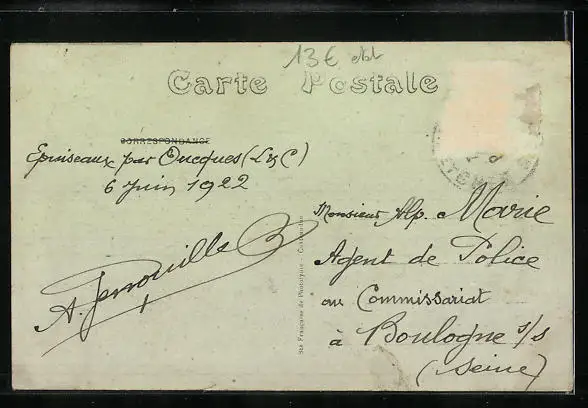 13€
Carte Postale
CORRESPONDANCE
Epuiseaux par Oucques (L & C)
6 Juin 1922
Monsieur Alp. Marie
Agent de Police
au Commissariat
à Boulogne s/s
(Seine)
A.
Sté Française de Phototypie -